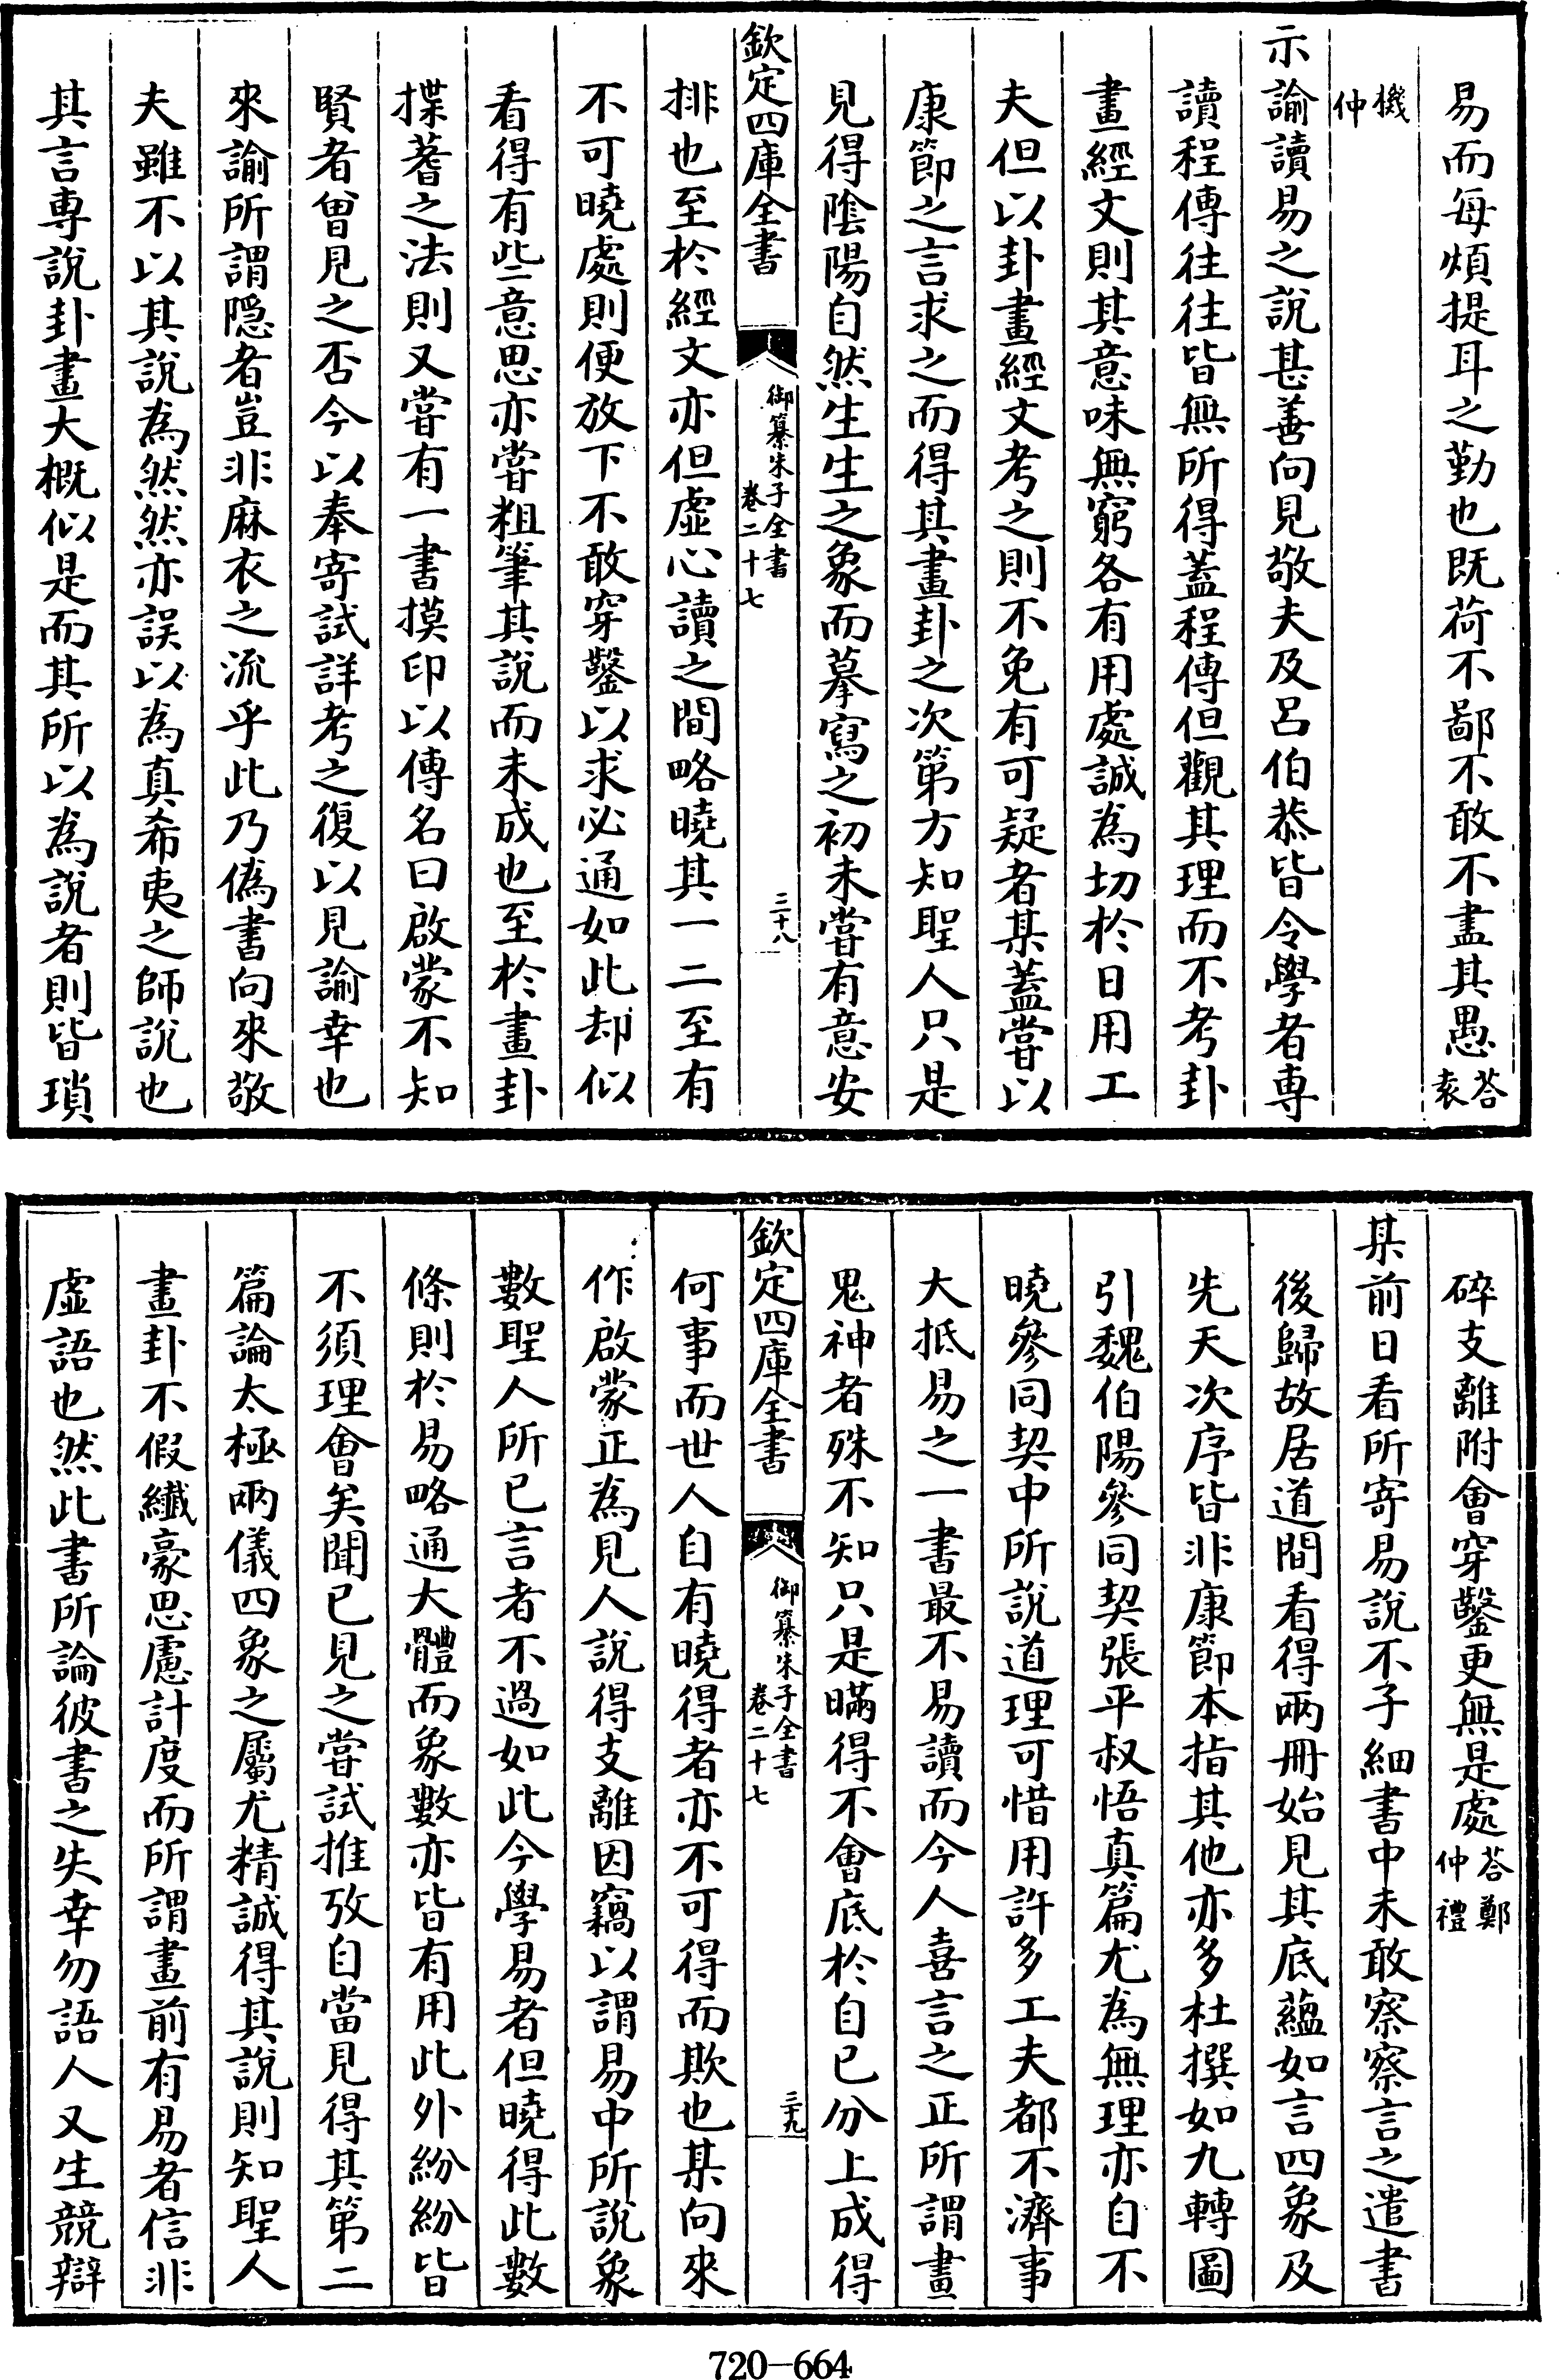 易而每煩提耳之勤也既荷不鄙不敢不盡其愚答袁
機仲
示諭讀易之說甚善向見敬夫及呂伯恭皆令學者專
讀程傳往往皆無所得蓋程傳但觀其理而不考卦
畫經文則其意味無窮各有用處誠為切於日用工
夫但以卦畫經文考之則不免有可疑者某蓋嘗以
康節之言求之而得其畫卦之次第方知聖人只是
見得陰陽自然生生之象而摹寫之初未嘗有意安
欽定四庫全書
御纂朱子全書
卷二十七
三十八
排也至於經文亦但虛心讀之間略曉其一二至有
不可曉處則便放下不敢穿鑿以求必通如此却似
看得有些意思亦嘗粗筆其說而未成也至於畫卦
揲蓍之法則又嘗有一書摸印以傳名曰啟蒙不知
賢者曾見之否今以奉寄試詳考之復以見諭幸也
來諭所謂隱者豈非麻衣之流乎此乃偽書向來敬
夫雖不以其說為然然亦誤以為真希夷之師說也
其言專說卦畫大概似是而其所以為說者則皆瑣
碎支離附會穿鑿更無是處答鄭仲禮
某前日看所寄易說不子細書中未敢察察言之遣書
後歸故居道間看得兩冊始見其底蘊如言四象及
先天次序皆非康節本指其他亦多杜撰如九轉圖
引魏伯陽參同契張平叔悟真篇尤為無理亦自不
曉參同契中所說道理可惜用許多工夫都不濟事
大抵易之一書最不易讀而今人喜言之正所謂畫
鬼神者殊不知只是瞞得不會底於自己分上成得
欽定四庫全書
御纂朱子全書
卷二十七
三十九
何事而世人自有曉得者亦不可得而欺也某向來
作啟蒙正為見人說得支離因竊以謂易中所說象
數聖人所已言者不過如此今學易者但曉得此數
條則於易略通大體而象數亦皆有用此外紛紛皆
不須理會矣聞已見之嘗試推攷自當見得其第二
篇論太極兩儀四象之屬尤精誠得其說則知聖人
畫卦不假纖豪思慮計度而所謂畫前有易者信非
虛語也然此書所論彼書之失幸勿語人又生競辯
720-664